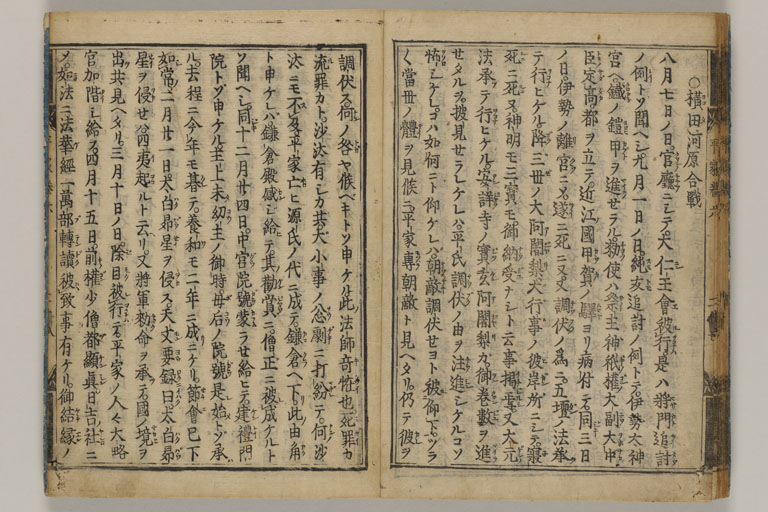 ○横田河原合戰
八月七日ノ日官廳ニシテ大仁王會被行是ハ將門追討
ノ例トソ聞ヘシ九月一日ノ日純友追討ノ例トテ伊勢大神
宮ヘ鐵ノ鎧甲ヲ進セラル勅使ハ祭主神祇權大副大中
臣定高都ヲ立テ近江國甲賀ノ驛ヨリ病付テ同三日
ノ日伊勢ノ離宮ニシテ遂ニ死ニヌ又調伏ノ爲ニ五壇ノ法承
テ行ヒケル降三世ノ大阿闍梨大行事ノ彼岸所ニシテ寢
死ニ死ヌ神明モ三寶モ御納受ナシト云事掲焉又大元
法承テ行ヒケル安祥寺ノ實玄阿闍梨カ御巻數ヲ進
セタルヲ披見セラレケレハ平氏調伏ノ由ヲ注進シケルコソ
怖シケレコハ如何ニト仰ケレハ朝敵調伏セヨト被仰下ツラ
ク當世ノ體ヲ見候ニ平家專朝敵ト見ヘタリ仍テ彼ヲ
調伏ス何ノ咎ヤ候ヘキトソ申ケル此法師奇恠也死罪カ
流罪カト沙汰有シカ共大小事ノ怱劇ニ打紛テ何沙
汰ニモ不及平家亡ヒ源氏ノ代ニ成テ鎌倉ヘ下此由角
ト申ケレハ鎌倉殿感シ給テ其勸賞ニ僧正ニ被成ケルト
ソ聞ヘシ同十二月廿四日中宮院號蒙ラせ給ヒテ建禮門
院トソ申ケル主上未幼主ノ御時母后ノ院號是始トソ承
ル去程ニ今年モ暮テ養和モ二年ニ成ニケリ節會已下
如常二月廿一日太白昴星ヲ侵ス天文要録曰太白昴
星ヲ侵せハ四夷起ルト云リ又將軍勅命ヲ承テ國ノ境ヲ
出共見ヘタリ三月十日ノ日除目被行テ平家ノ人々大略
官加階シ給フ四月十五日前權少僧都顯眞日吉社ニ
ソ如法ニ法華經一萬部轉讀被致事有ケリ御結縁ノ